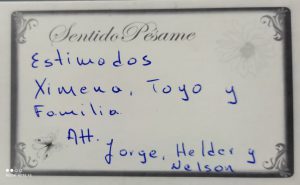 Sentido Pésame
Estimados
Ximena, Toyo y
Familia
Att.
Jorge, Helder y
Nelson